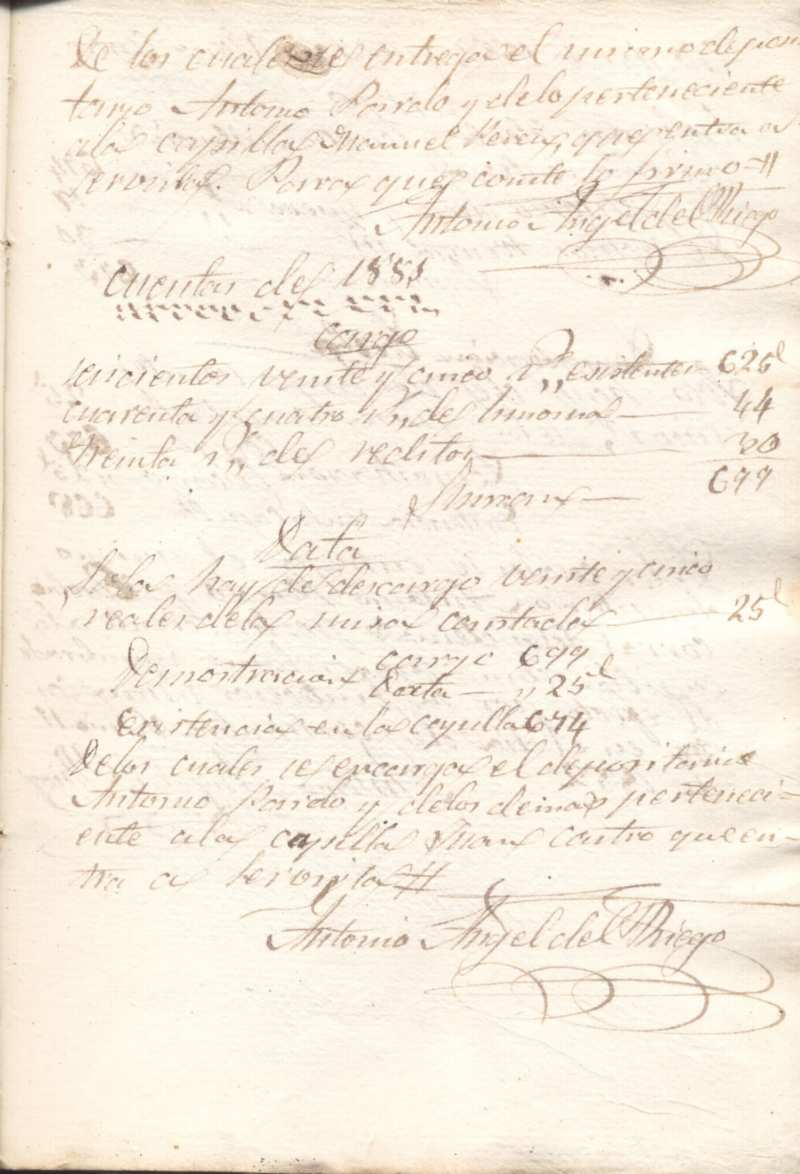 De los cuales se entrega el mismo deposi
tario Antonio Pardo y de lo perteneciente
a la capilla Manuel Perez, que entra a
servirla. Para que conste lo firmo=//
Antonio Angel del Riego
cuentas de
cargo
seicientos veinte y cinco Rs,, existentes 625"
cuarenta y cuatro Rs,, de limosna 44
treinta Rs,, de reditos 30
Suman 699
Data
Se la hay de descargo veinte y cinco
reales de la misa cantada 25"
Demostracion cargo 699
Data 25"
Existencia en la capilla 674
De los cuales se encarga el depositario
Antonio Pardo y de los demas perteneci-
ente a la capilla Juan Castro que en-
tra a servirla //
Antonio Angel del Riego